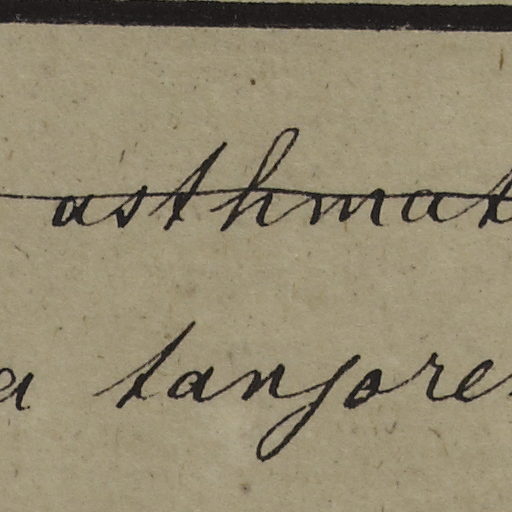 asthmat
a tanjore